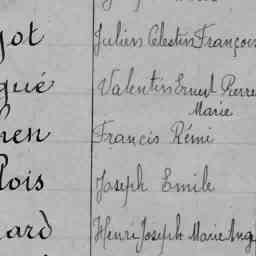 jot Julien Célestin François
gué Valentin Ernest Pierre
Marie
hen Francis Rémi
lois Joseph Emile
lard Henri Joseph Marie Ang